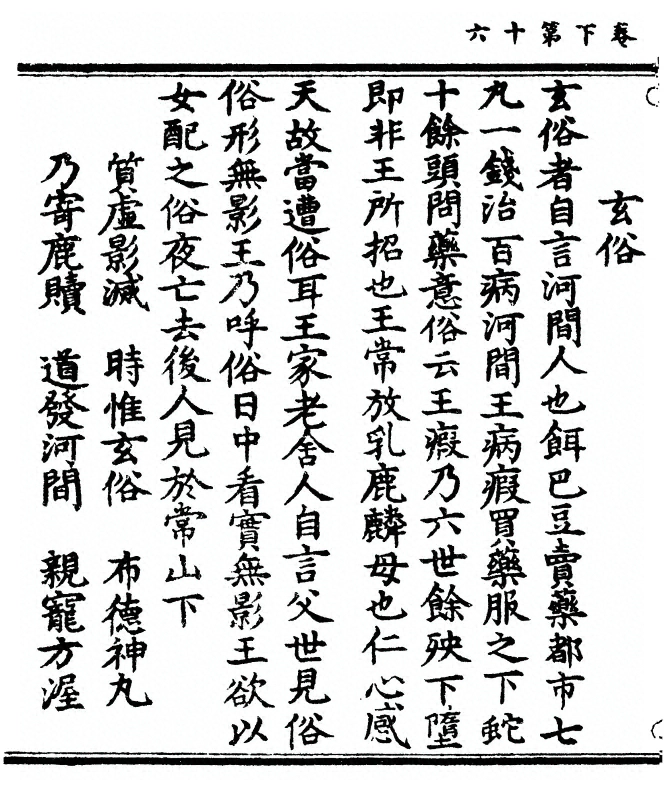 卷下第十六
玄俗
玄俗者自言河間人也餌巴豆賣藥都市七
丸一錢治百病河間王病瘕買藥服之下蛇
十餘頭問藥意俗云王瘕乃六世餘殃下墮
即非王所招也王常放乳鹿麟母也仁心感
天故當遭俗耳王家老舍人自言父世見俗
俗形無影王乃呼俗日中看實無影王欲以
女配之俗夜亡去後人見於常山下
質虛影滅　時惟玄俗　布德神丸
乃寄鹿贖　道發河間　親寵方渥